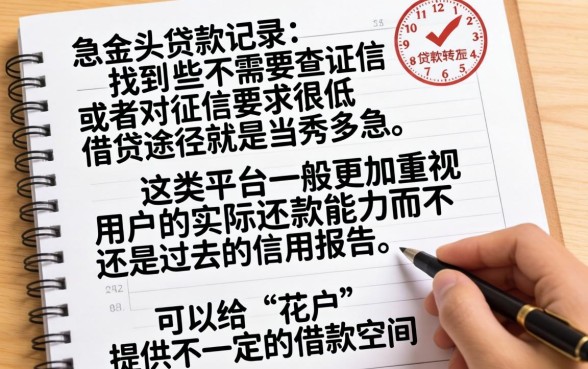 急金头贷款记录：
找到些不需要查证信
或者对征信要求很低
借贷途径就是当秀多急。
这类平台一般更加重视
用户的实际还款能力而不
还是过去的信用报告。
可以给“花户”
提供不一定的借款空间
12
1
2
3
4
5
6
7
8
9
10
11